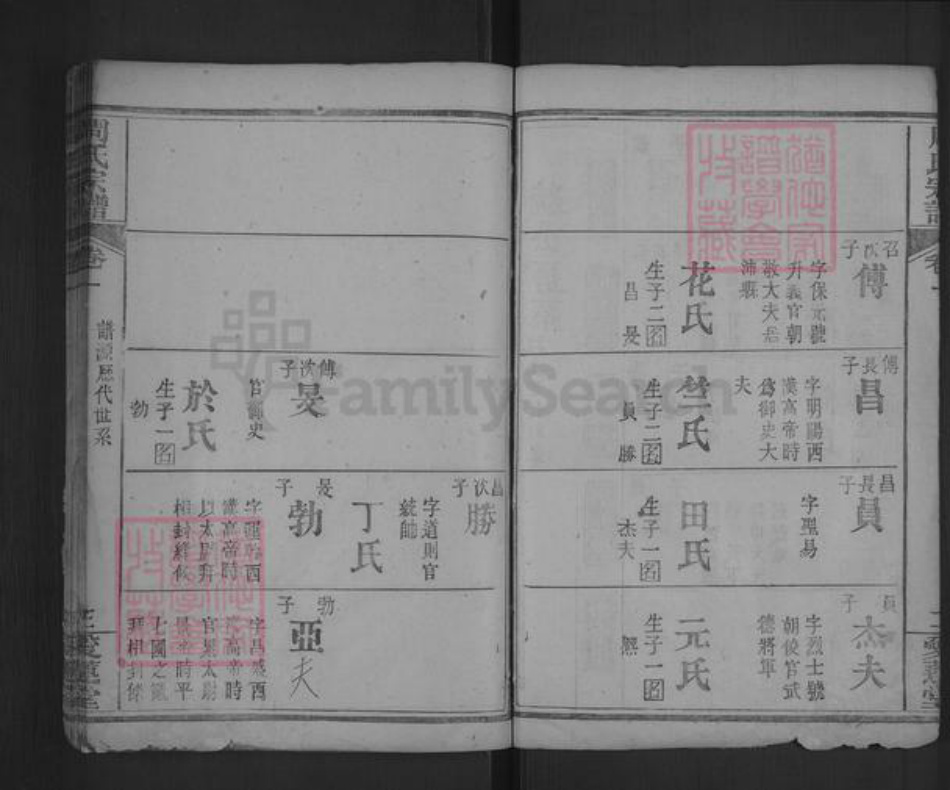 周氏宗譜
卷一
召次子
傅
字保元號
升義官朝
散大夫居
沛縣
花氏
生子二名
昌 旻
傅長子
昌
字明陽西
漢高帝時
爲御史大
夫
竺氏
生子二名
員 勝
昌長子
員
字聖易
田氏
生子一名
杰夫
員子
杰夫
字烈士號
朝俊官武
德將軍
元氏
生子一名
熙
傅次子
旻
官御史
於氏
生子一名
勃
昌次子
勝
字道則官
統帥
丁氏
旻子
勃
漢高帝時
以太尉拜
相封絳侯
勃子
亞夫
官太尉
景帝時平
七國之亂
拜相封條
周氏宗譜
卷一
譜源歷代世系
愛蓮堂
遒伱家譜學會收藏
FamilySearch